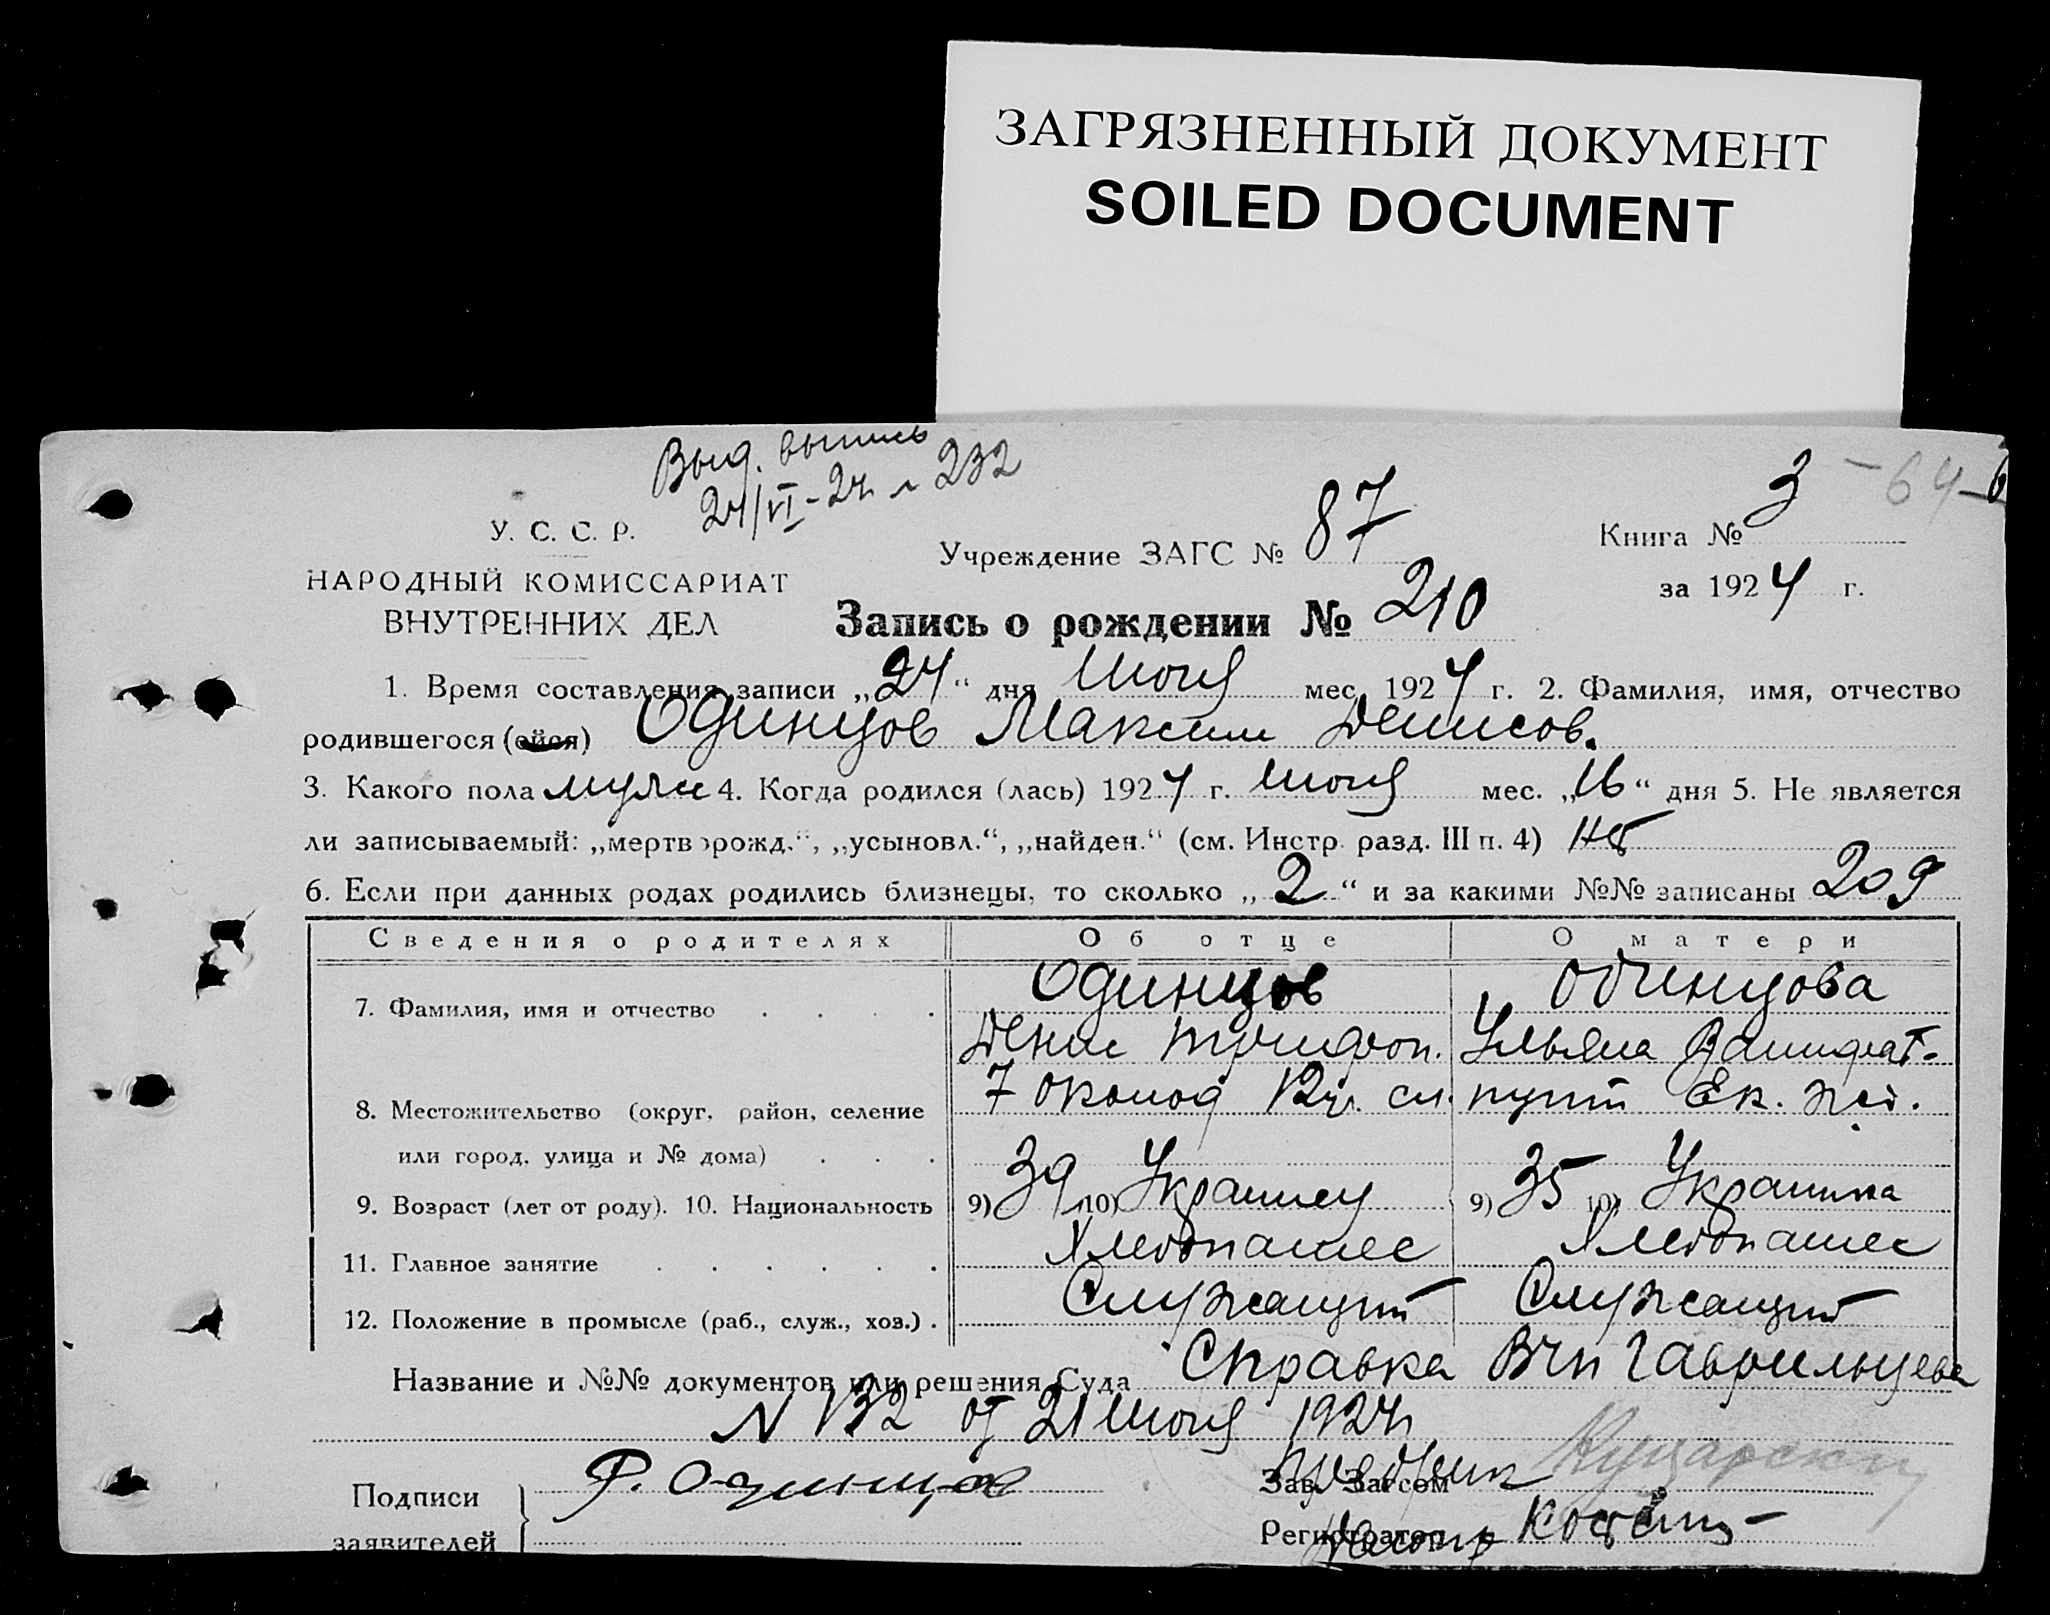 ЗАГРЯЗНЕННЫЙ ДОКУМЕНТ
SOILED DOCUMENT
Выд. выпись
24/VI-24 г № 232
3 - 64-
У. С. С. Р.
НАРОДНЫЙ КОМИССАРИАТ
ВНУТРЕННИХ ДЕЛ
Учреждение ЗАГС № 87
Книга № 3
за 1924 г.
Запись о рождении № 210
1. Время составления записи „24“ дня Июня мес. 1924 г. 2. Фамилия, имя, отчество
родившегося (ейся) Одинцов Максим Денисов.
3. Какого пола мужс 4. Когда родился (лась) 1924 г. Июня мес. „16“ дня 5. Не является
ли записываемый: „мертворожд.“, „усыновл.“, „найден.“ (см. Инстр. разд. III п. 4) Нет
6. Если при данных родах родились близнецы, то сколько „2“ и за какими №№ записаны 209
Сведения о родителях Об отце О матери
7. Фамилия, имя и отчество Одинцов Одинцова
Денис Трифон. Ульяна
8. Местожительство (округ, район, селение 7 околод 12 уч. сл. пути Ек. жел.
или город, улица и № дома)
9. Возраст (лет от роду). 10. Национальность 9) 39 10) Украинец 9) 35 10) Украинка
11. Главное занятие Хлебопашес Хлебопашес
12. Положение в промысле (раб., служ., хоз.) Служащий Служащий
Название и №№ документов или решения Суда Справка Вчп Гаврильцева
N 132 от 21 Июня 1924 г
Подписи
заявителей
Одинцов
Зав. Загсом
Регистратор